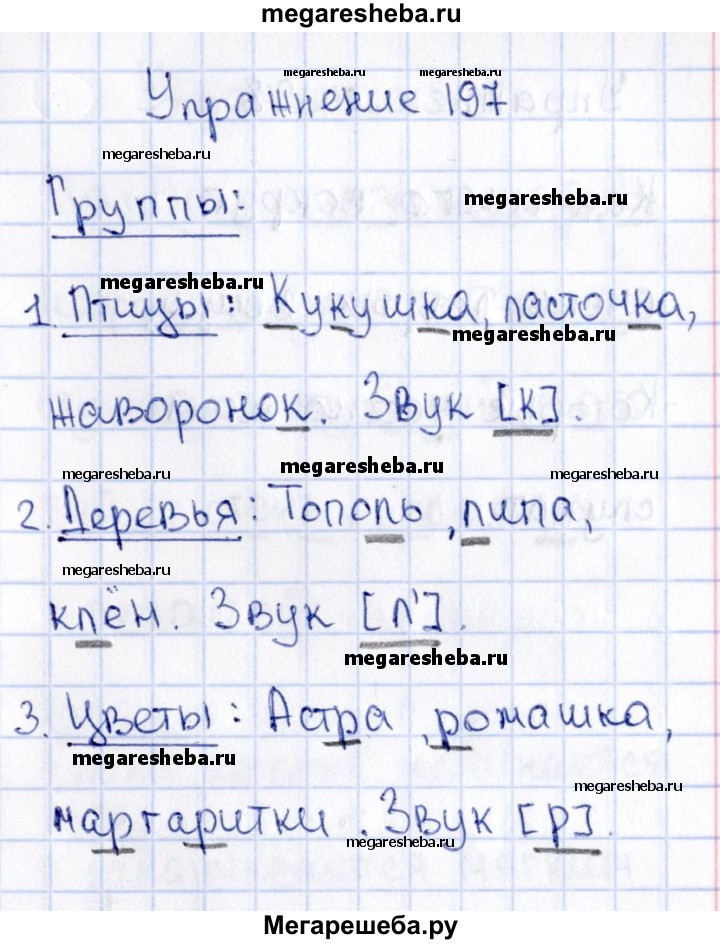 megaresheba.ru
megaresheba.ru megaresheba.ru
Упражнение 197
megaresheba.ru
Группы:
megaresheba.ru
megaresheba.ru
1. Птицы: Кукушка, ласточка,
megaresheba.ru
жаворонок. Звук [к].
megaresheba.ru megaresheba.ru megaresheba.ru
2. Деревья: Тополь, липа,
megaresheba.ru
клён. Звук [л'].
megaresheba.ru
3. Цветы: Астра, ромашка,
megaresheba.ru
megaresheba.ru
маргаритки. Звук [р].
megaresheba.ru
Мегарешеба.ру